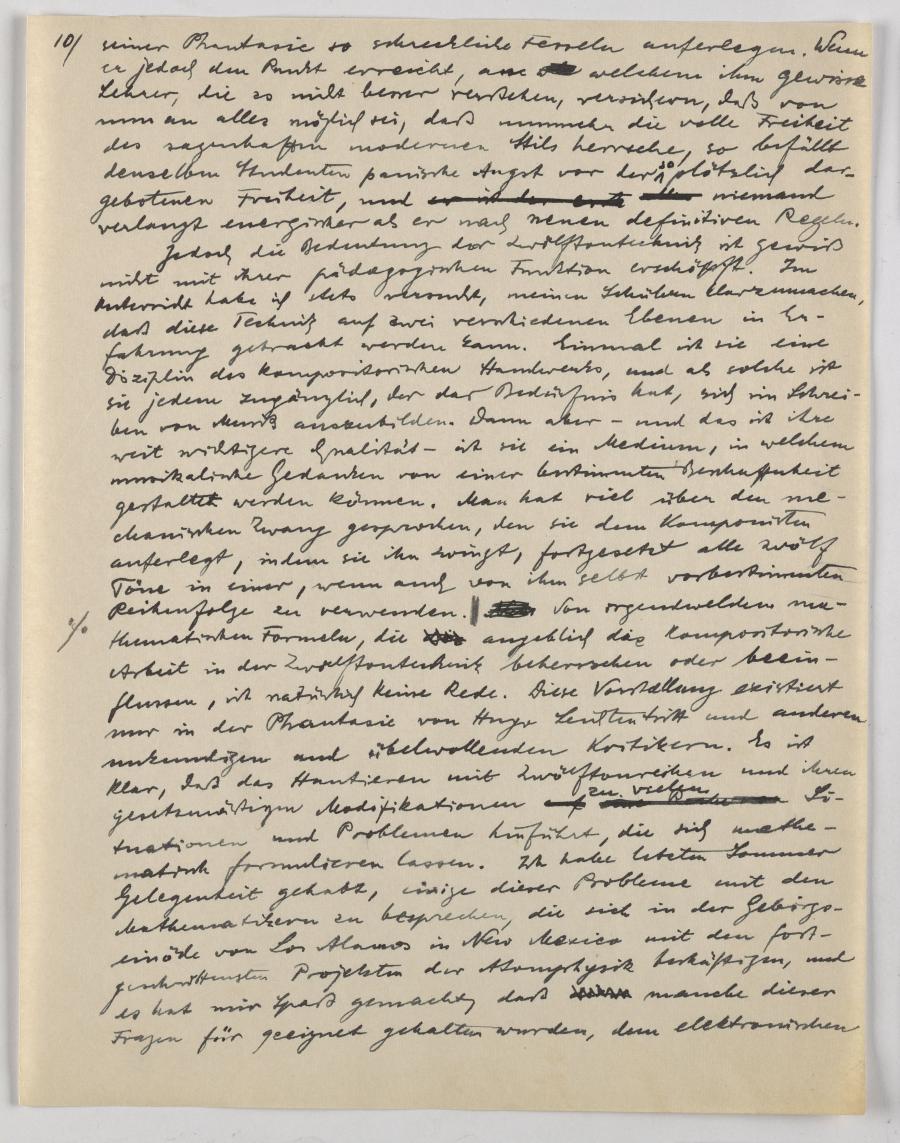 10/ seiner Phantasie so schreckliche Fesseln auferlegen. Wenn
er jedoch den Punkt erreicht, an welchem ihm gewisse
Lehrer, die es nicht besser verstehen, versichern, daß von
nun an alles möglich sei, daß nunmehr die volle Freiheit
des sagenhaften modernen Stils herrsche, so befällt
denselben Studenten panische Angst vor der so plötzlich dar-
gebotenen Freiheit, und er ist der erste niemand
verlangt energischer als er nach neuen definitiven Regeln.
Jedoch die Bedeutung der Zwölftontechnik ist gewiß
nicht mit ihrer pädagogischen Funktion erschöpft. Im
Unterricht habe ich stets versucht, meinen Schülern klarzumachen,
daß diese Technik auf zwei verschiedenen Ebenen in Er-
fahrung gebracht werden kann. Einmal ist sie eine
Disziplin des kompositorischen Handwerks, und als solche ist
sie jedem zugänglich, der das Bedürfnis hat, sich im Schrei-
ben von Musik auszubilden. Dann aber – und das ist ihre
weit wichtigere Qualität – ist sie ein Medium, in welchem
musikalische Gedanken von einer bestimmten Beschaffenheit
gestaltet werden können. Man hat viel über den me-
chanischen Zwang gesprochen, den sie dem Komponisten
auferlegt, indem sie ihn zwingt, fortgesetzt alle zwölf
Töne in einer, wenn auch von ihm selbst vorbestimmten
Reihenfolge zu verwenden. | Von irgendwelchen ma-
thematischen Formeln, die angeblich die kompositorische
Arbeit in der Zwölftontechnik beherrschen oder beein-
flussen, ist natürlich keine Rede. Diese Vorstellung existiert
nur in der Phantasie von Hugo Leichtentritt und anderen
unkundigen und übelwollenden Kritikern. Es ist
klar, daß das Hantieren mit Zwölftonreihen und ihren
gesetzmäßigen Modifikationen zu vielen Si-
tuationen und Problemen hinführt, die sich mathe-
matisch formulieren lassen. Ich habe letzten Sommer
Gelegenheit gehabt, einige dieser Probleme mit den
Mathematikern zu besprechen, die sich in der Gebirgs-
einöde von Los Alamos in New Mexico mit den fort-
geschrittensten Projekten der Atomphysik beschäftigen, und
es hat mir Spaß gemacht, daß manche dieser
Fragen für geeignet gehalten wurden, dem elektronischen